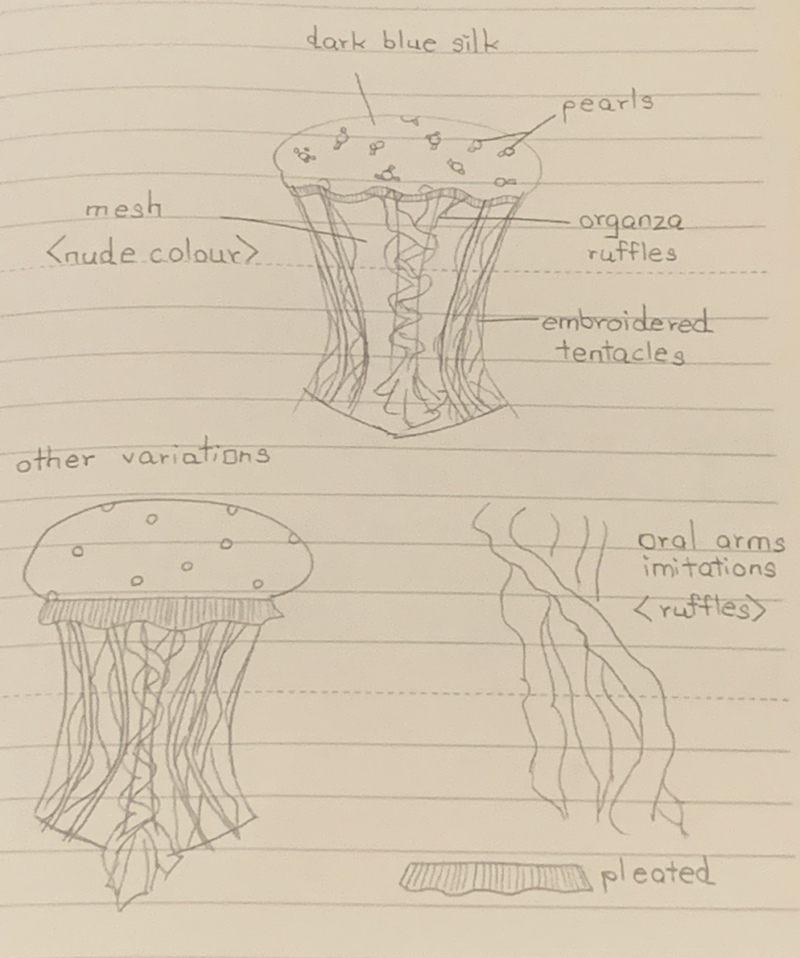 dark blue silk
pearls
mesh
<nude colour>
organza
ruffles
embroidered
tentacles
other variations
oral arms
imitations
<ruffles>
pleated